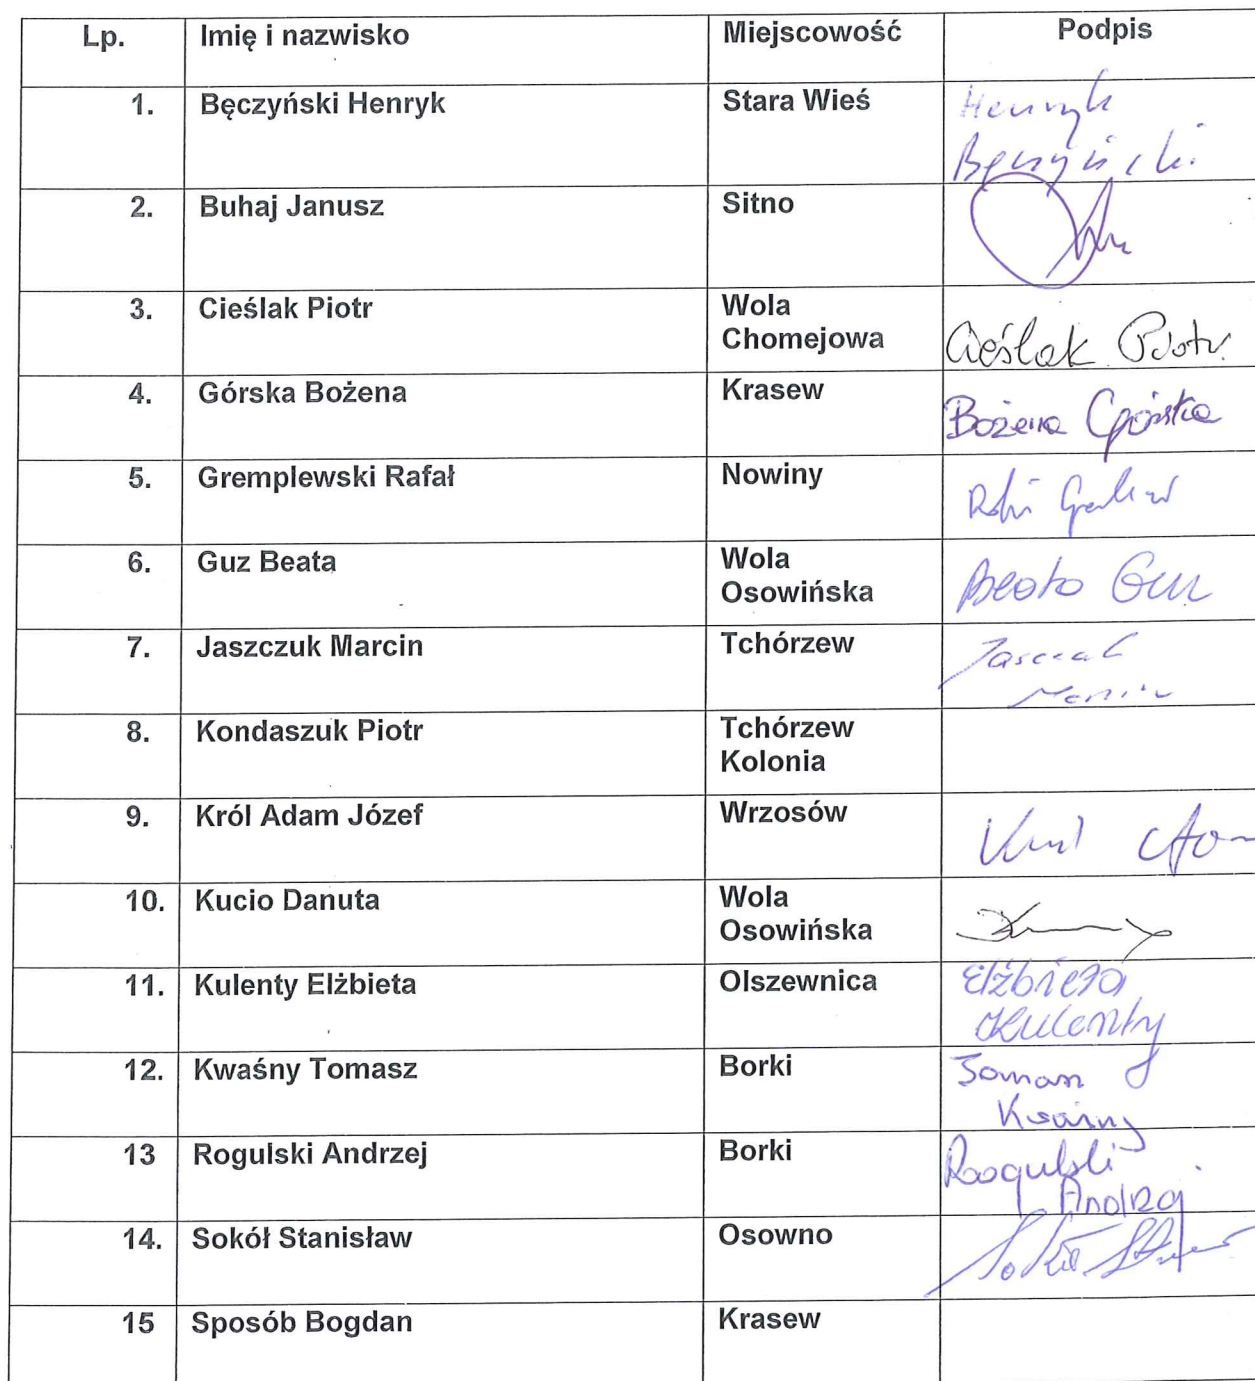 Lp. Imię i nazwisko Miejscowość Podpis
1. Bęczyński Henryk Stara Wieś Henryk
Bęczyński
2. Buhaj Janusz Sitno
3. Cieślak Piotr Wola
Chomejowa Cieślak Piotr
4. Górska Bożena Krasew Bożena Górska
5. Gremplewski Rafał Nowiny
6. Guz Beata Wola
Osowińska Beata Guz
7. Jaszczuk Marcin Tchórzew
8. Kondaszuk Piotr Tchórzew
Kolonia
9. Król Adam Józef Wrzosów Król
10. Kucio Danuta Wola
Osowińska
11. Kulenty Elżbieta Olszewnica Elżbieta
Kulenty
12. Kwaśny Tomasz Borki Tomasz
Kwaśny
13 Rogulski Andrzej Borki Rogulski
Andrzej
14. Sokół Stanisław Osowno Sokół
15 Sposób Bogdan Krasew